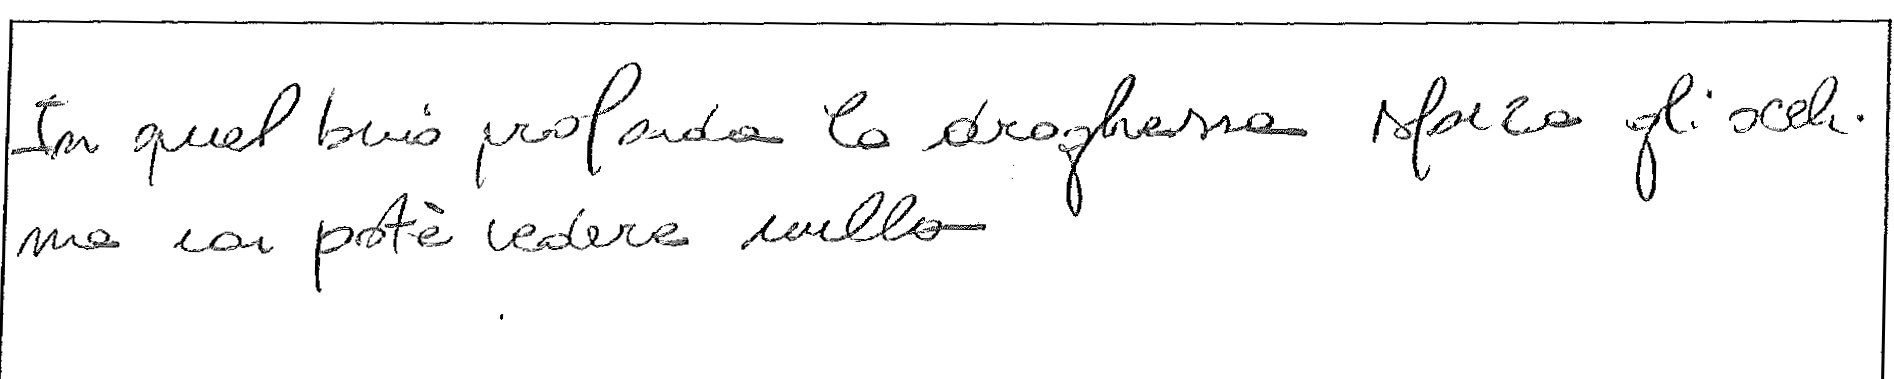 In quel buio profondo la draghessa sforza gli occhi
ma non poté vedere nulla